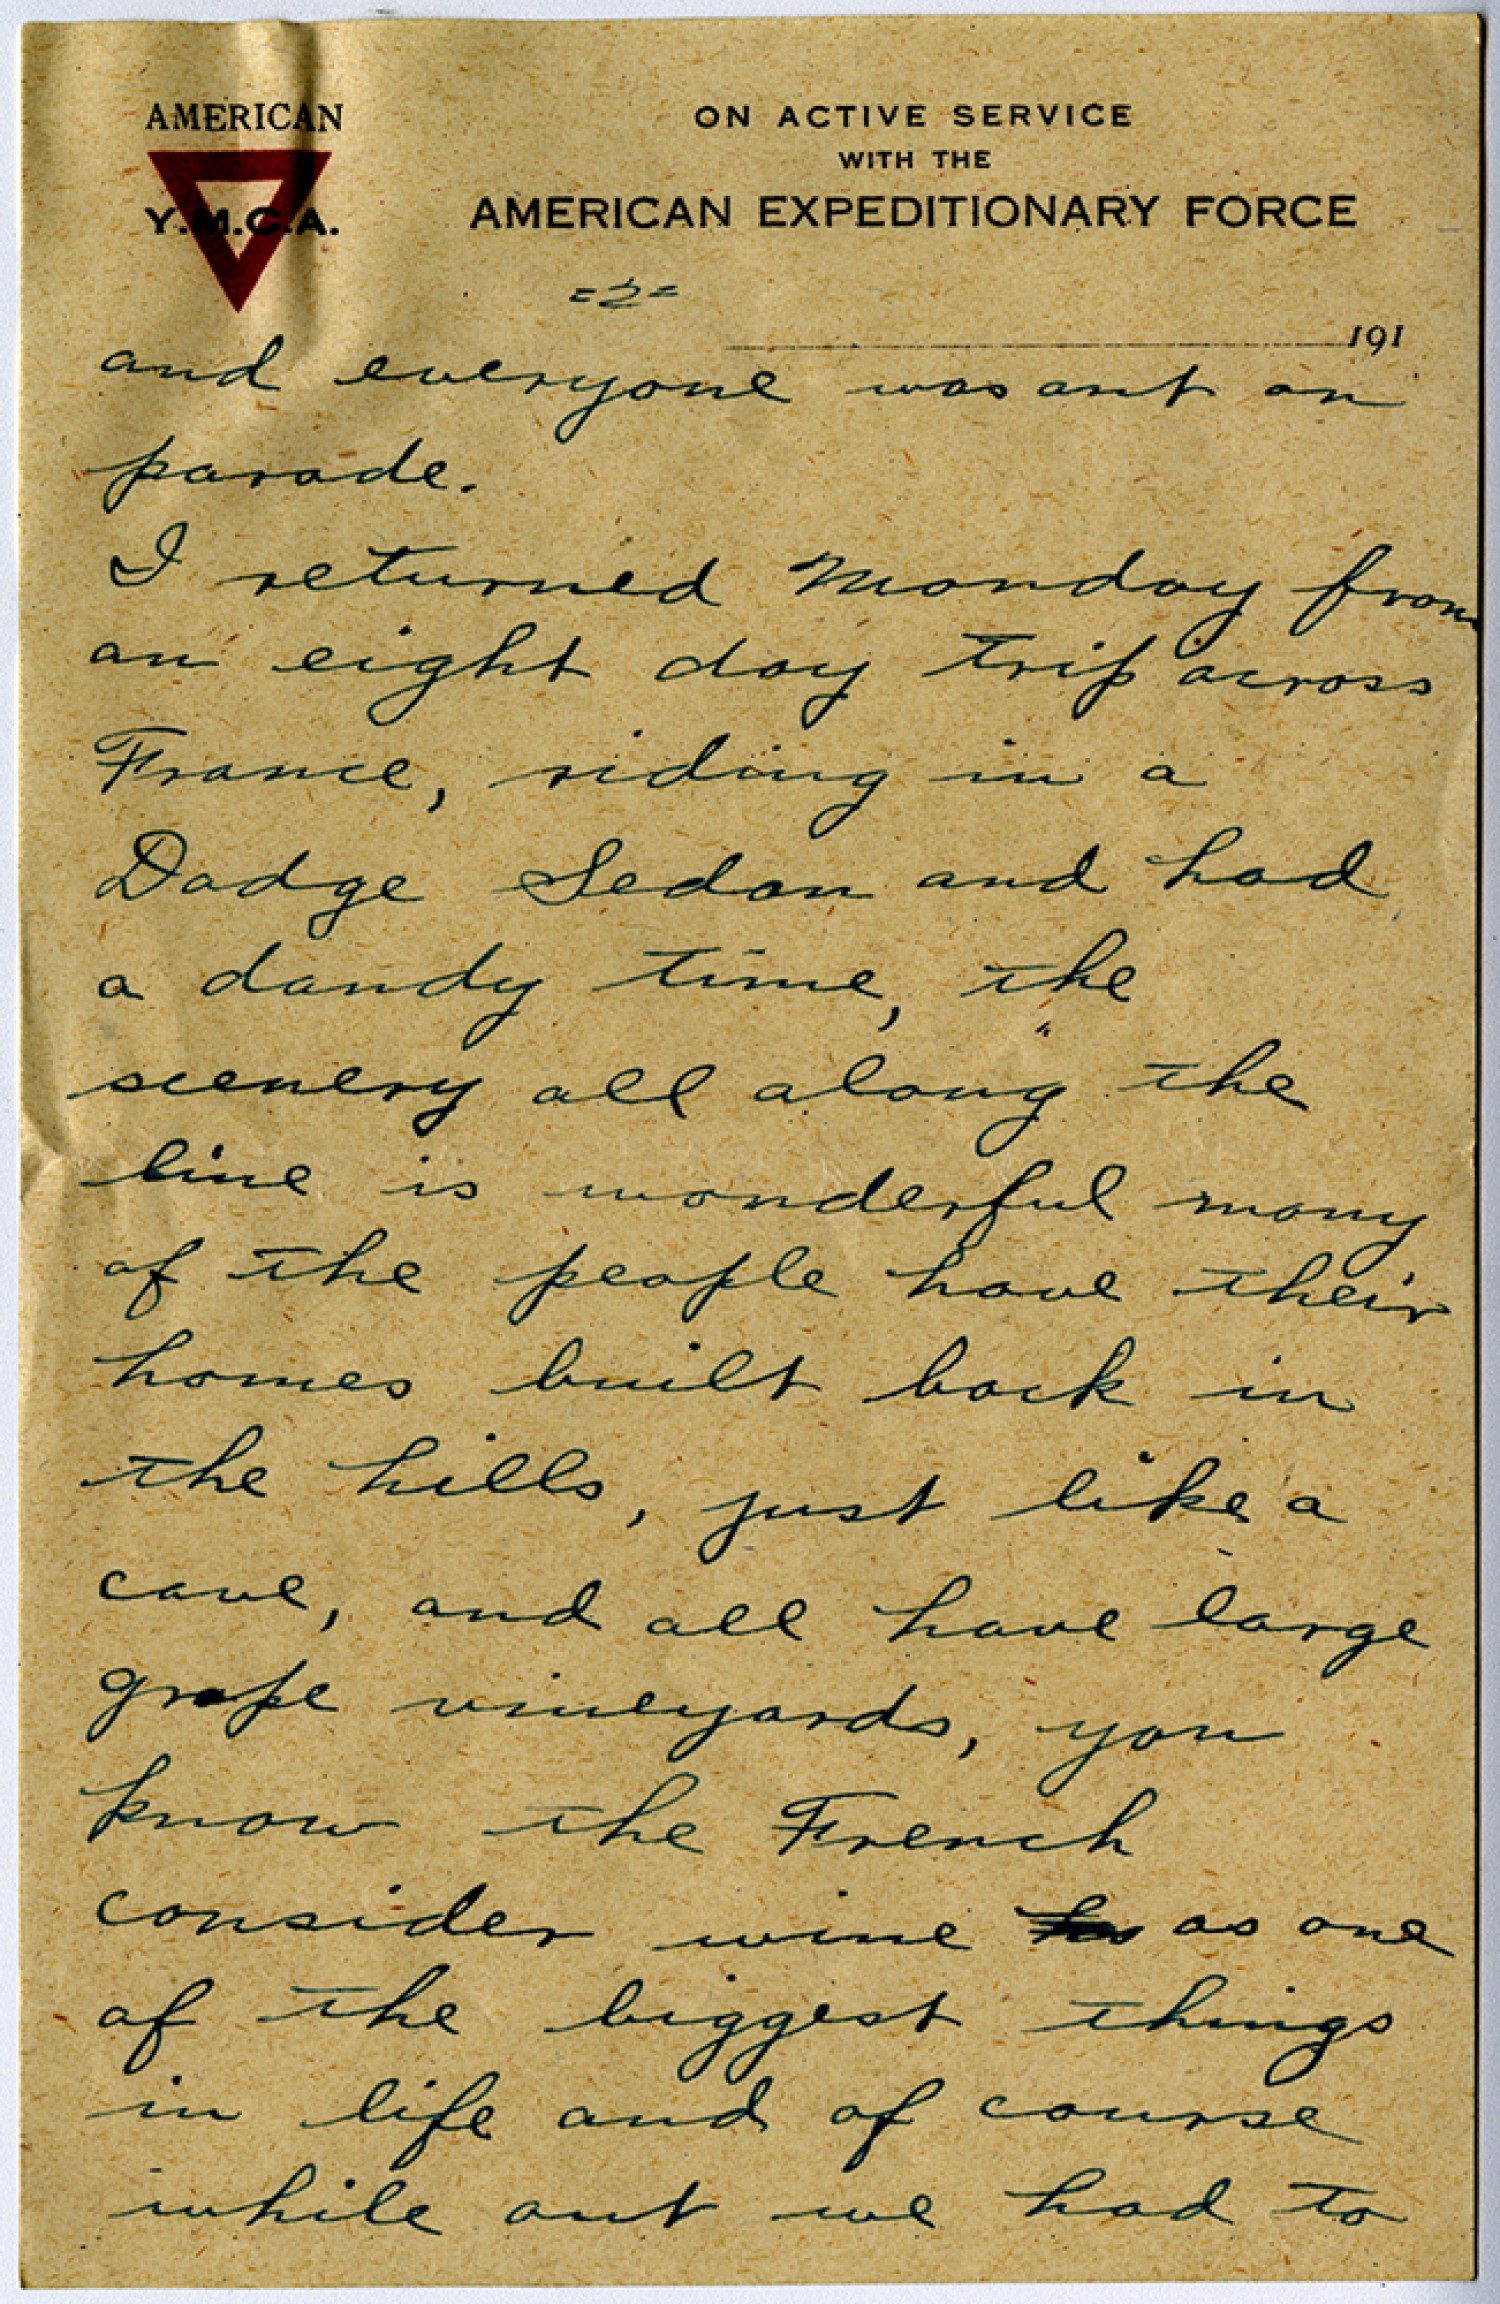 AMERICAN
Y.M.C.A.
ON ACTIVE SERVICE
WITH THE
AMERICAN EXPEDITIONARY FORCE
=2=
191
and everyone was out on
parade.
I returned Monday from
an eight day trip across
France, riding in a
Dodge Sedan and had
a dandy time, the
scenery all along the
line is wonderful many
of the people have their
homes built back in
the hills, just like a
cave, and all have large
grape vineyards, you
know the French
consider wine as one
of the biggest things
in life and of course
while out we had to